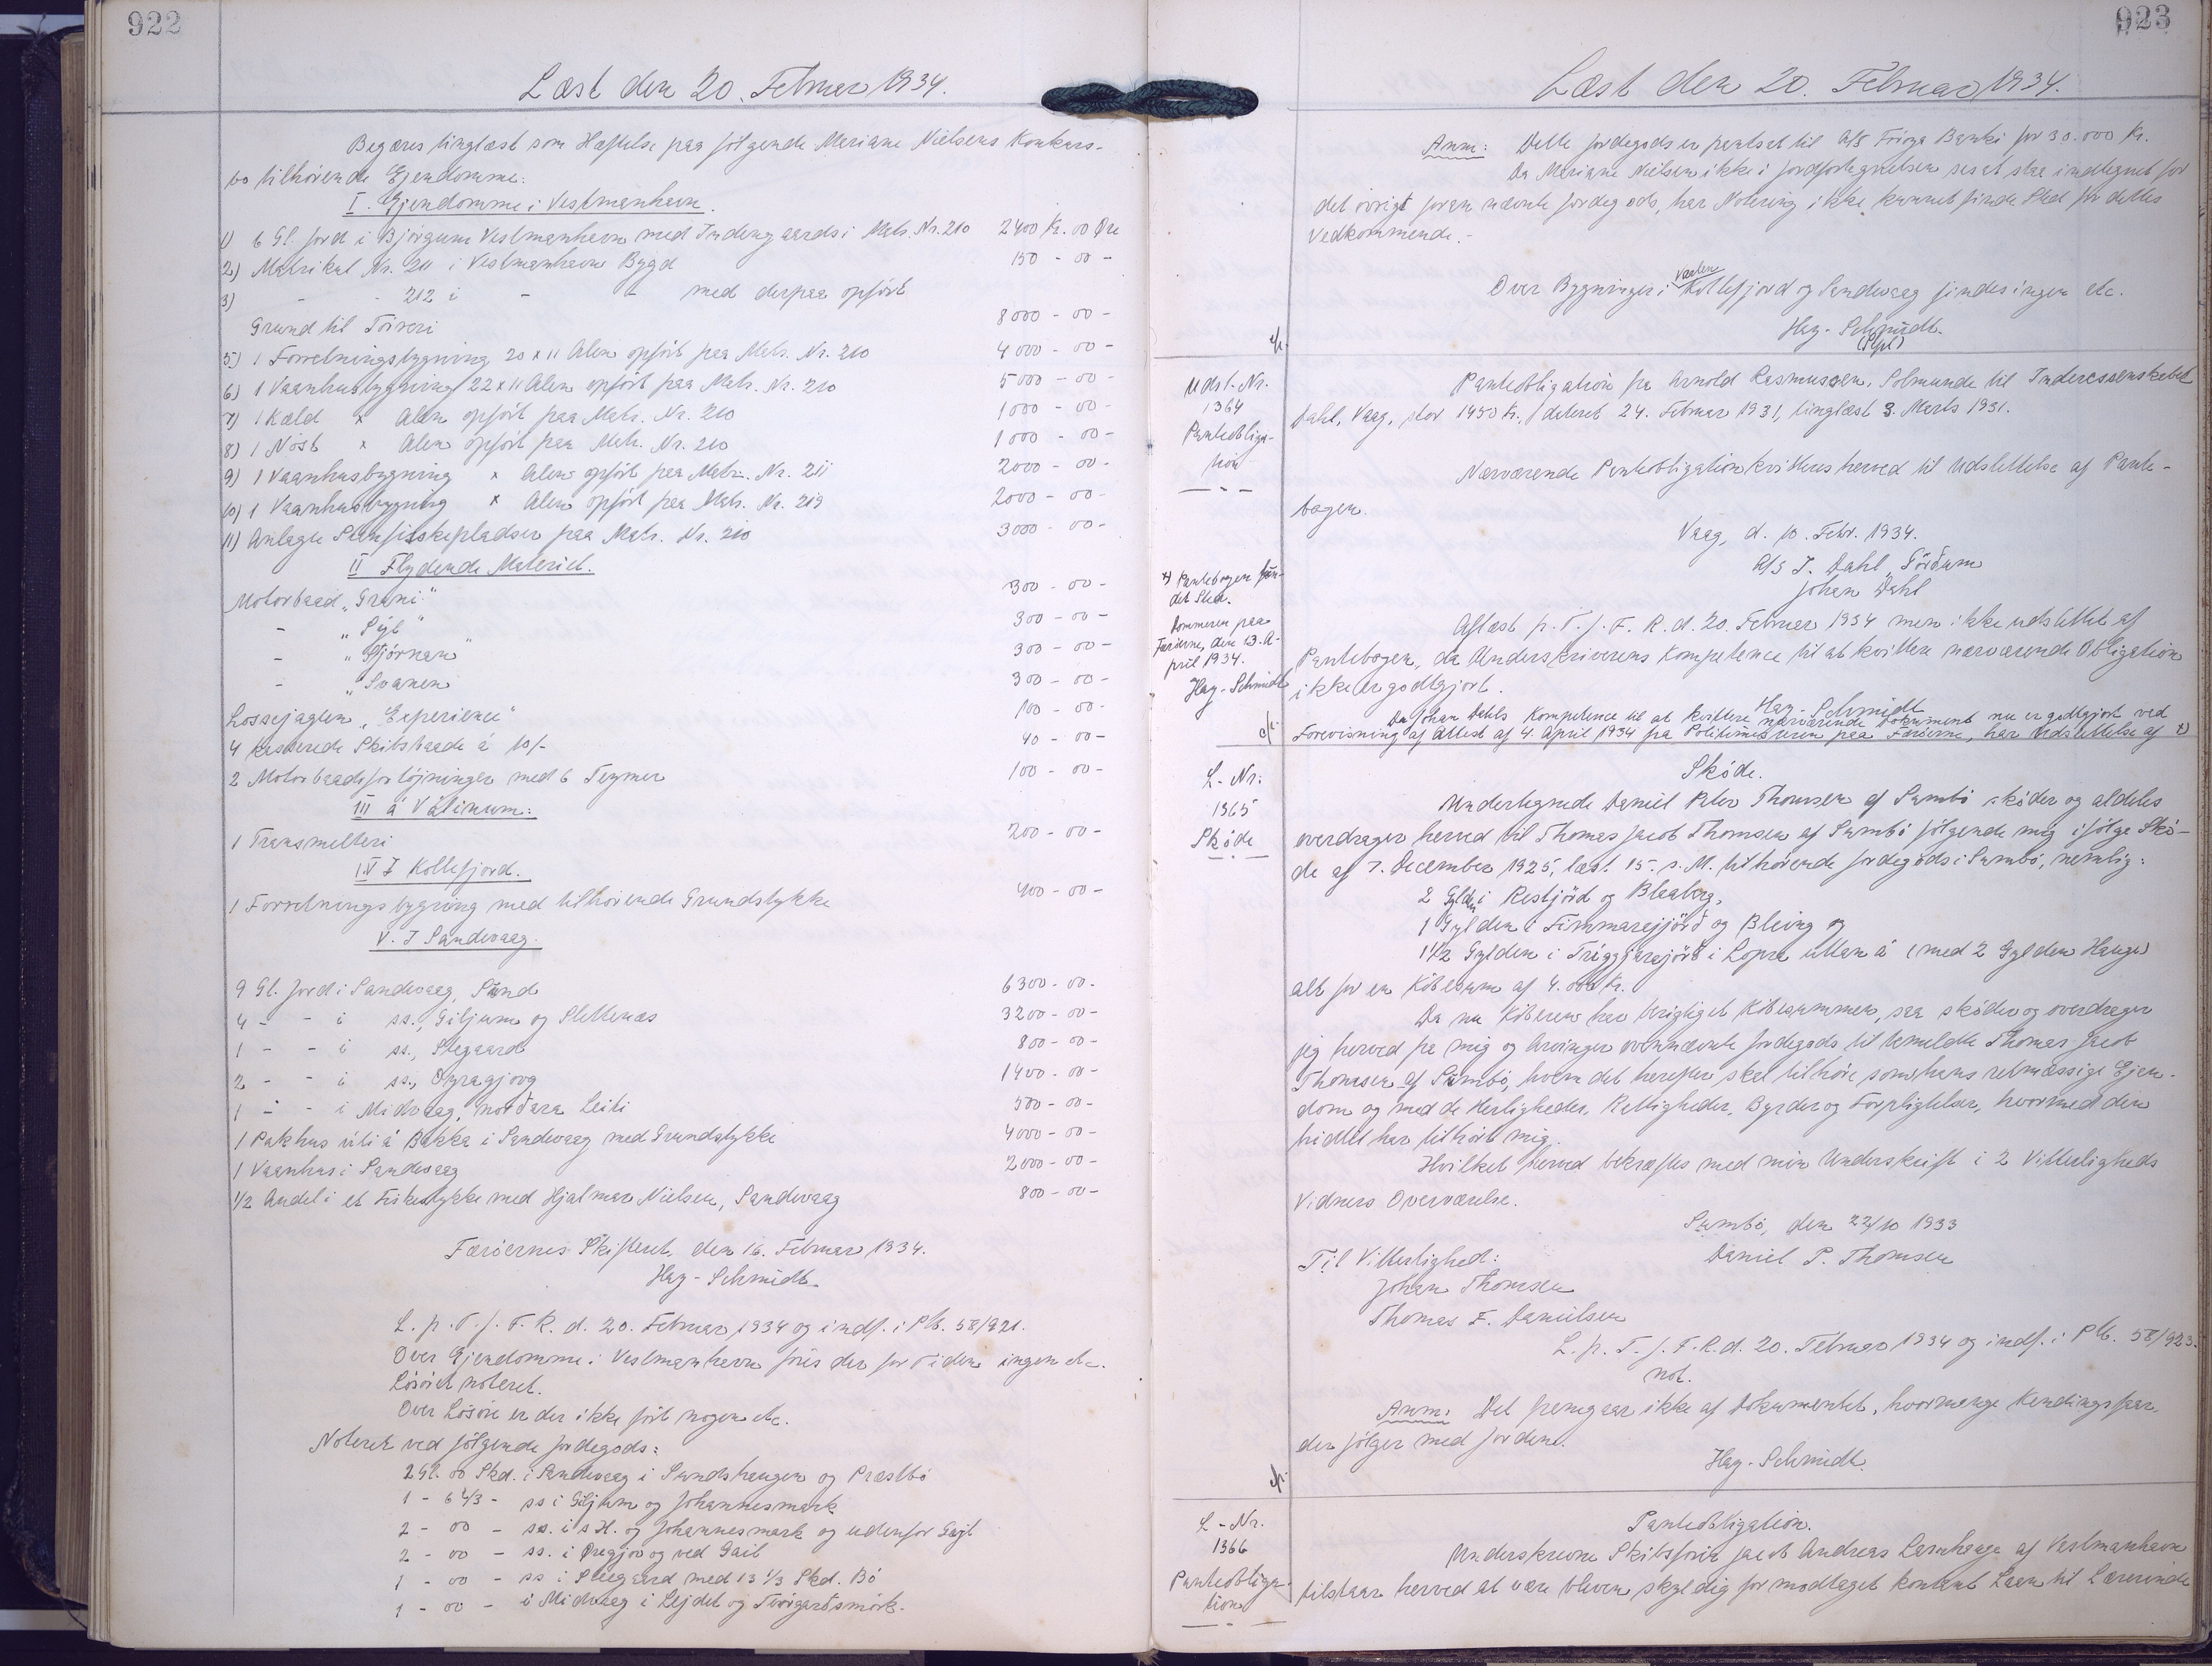 922
Læst den 20. Februar 1934.
Begæres tinglæst som Hæftelse paa følgende Mariane Nielsens Konkurs-
bo tilhørende Ejendomme:
I. Ejendomme i Vestmanhavn.
1) 6 Gl. Jord i Bjørgum Vestmanhavn med Indengaards i Matr. Nr. 210 2400 Kr. 00 Øre
2) Matrikul Nr. 211 i Vestmanhavn Bygd 150 - 00 -
3) - - 212 i - - med derpaa opført
Grund til Tørreri 8000 - 00 -
5) 1 Forretningsbygning 20 x 11 Alen opført paa Matr. Nr. 210 4000 - 00 -
6) 1 Vaanhusbygning 22 x 11 Alen opført paa Matr. Nr. 210 5000 - 00 -
7) 1 Kæld x Alen opført paa Matr. Nr. 210 1000 - 00 -
8) 1 Nøst x Alen opført paa Matr. Nr. 210 1000 - 00 -
9) 1 Vaanhusbygning x Alen opført paa Matr. Nr. 211 2000 - 00 -
10) 1 Vaanhusbygning x Alen opført paa Matr. Nr. 213 2000 - 00 -
11) Anlagte Pladser paa Matr. Nr. 210 3000 - 00 -
II Flydende Materiel.
Motorbaad "Grani" 300 - 00 -
- "Pyl" 300 - 00 -
- "Stjørnan" 300 - 00 -
- "Svanen" 300 - 00 -
Lossejagten "Experience" 100 - 00 -
4 kasserede Skibsbaade á 10/- 40 - 00 -
2 Motorbaadsfortøjninger med 6 100 - 00 -
III á Válinum:
1 Transmelteri 200 - 00 -
IV I Kollefjord.
1 Forretningsbygning med tilhørende Grundstykke 400 - 00 -
V. I Sandevaag.
9 Gl. Jord i Sandevaag, Sund 6300 - 00 -
4 - - i ss., Giljum og Slettenæs 3200 - 00 -
1 - - i ss., Stegaard 800 - 00 -
2 - - i ss., Oyragjovg 1400 - 00 -
1 - - i Midvaag, norðara Leiti 500 - 00 -
1 Pakhus úti á Bakka i Sandevaag med Grundstykke 4000 - 00 -
1 Vaanhus i Sandevaag 2000 - 00 -
1/2 Andel i et Fiskestykke med Hjalmar Nielsen, Sandevaag 800 - 00 -
Færøernes Skifteret, den 16. Februar 1934.
Hay-Schmidt.
L. p. T. f. F. R. d. 20. Februar 1934 og indf. i Ptb. 58/921.
Over Ejendomme i Vestmanhavn føres der for Tiden ingen etc.
Løsøret noteret.
Over Løsøre er der ikke ført nogen etc.
Noteret ved følgende Jordegods:
2 Gl. 00 Skd. i Sandevaag i Sundshaugen og Præstbø
1 - 6 2/3 - ss i Giljum og Johannesmark
2 - 00 - ss. i s H. og Johannesmark og udenfor Gøjl
2 - 00 - ss. i Øregjov og ved Gail
1 - 00 - ss i Stiegaard med 13 1/3 Skd. Bø
1 - 00 - i Midvaag i Lejdet og
923
Læst den 20. Februar 1934.
Anm: Dette Jordegods er pantsat til A/S Føroya Banki for 30.000 Kr.
Da Mariane Nielsen ikke i Jordfortegnelsen ses at staa indtegnet for
det øvrigt foran nævnte Jordegods, har Notering ikke kunnet finde Sted for dettes
Vedkommende.-
Over Bygninger i Kollefjord og Sandevaag findes ingen etc.
Hay-Schmidt.
(Slpl)
Udsl.-Nr.
1364
Panteobliga-
tion
Panteobligation fra Arnold Rasmussen, Solmunde til Interessentskabet
Dahl, Vaag, stor 1450 Kr., dateret 24. Februar 1931, tinglæst 3. Marts 1931.
Nærværende Panteobligation kvitteres herved til Udslettelse af Pante-
bogen.
Vaag, d. 10. Febr. 1934.
A/S J. Dahl, Førðum
Johan Dahl
Aflæst p. T. f. F. R. d. 20. Februar 1934 men ikke udslettet af
Pantebogen, da Underskriverens Kompetence til at kvittere nærværende Obligation
ikke er godtgjort.
Hay-Schmidt
Da Johan Dahls Kompetence til at kvittere nærværende Dokument nu er godtgjort ved
Forevisning af Attest af 4. April 1934 fra Politimesteren paa Færøerne, har Udslettelse af x)
x) Pantebogen fun-
det Sted.
Dommeren paa
Færøerne, den 13. A-
pril 1934.
Hay-Schmidt
L-Nr.
1365
Skøde
Skøde.
Undertegnede Daniel Peter Thomsen af Sumbø skøder og aldeles
overdrager herved til Thomas Jacob Thomsen af Sumbø følgende mig ifølge Skø-
de af 7. December 1925, læst 15. s. M. tilhørende Jordegods i Sumbø, nemlig:
2 Gylden i Restjørð og Bleaberg,
1 Gylden i Fimmarejjørð og Bleing og
1 1/2 Gylden i Tríggjarajørð i Lopra uttan á (med 2 Gylden Hauge)
alt for en Købesum af 4.000 Kr.
Da nu Køberen har berigtiget Købesummen, saa skøder og overdrager
jeg herved fra mig og Arvinger ovennævnte Jordegods til bemeldte Thomas Jacob
Thomsen af Sumbø, hvem det herefter skal tilhøre som hans retmæssige Ejen-
dom og med de Herligheder, Rettigheder, Byrder og Forpligtelser, hvormed den
hidtil har tilhørt mig.
Hvilket herved bekræftes med min Underskrift i 2 Vitterligheds
Vidners Overværelse.
Sumbø, den 22/10 1933
Daniel P. Thomsen
Til Vitterlighed:
Johan Thomsen
Thomas F. Danielsen
L. p. T. f. F. R. d. 20. Februar 1934 og indf. i Ptb. 58/923.
not.
Anm: Det fremgaar ikke af Dokumentet, hvormange Kendingsfaar,
der følger med Jorden.
Hay-Schmidt.
L-Nr.
1366
Panteobliga-
tion
Panteobligation.
Underskrevne Skibsfører Jacob Andreas Larnhauge af Vestmanhavn
tilstaar herved at være bleven skyldig for modtaget kontant Laan til Lærerinde